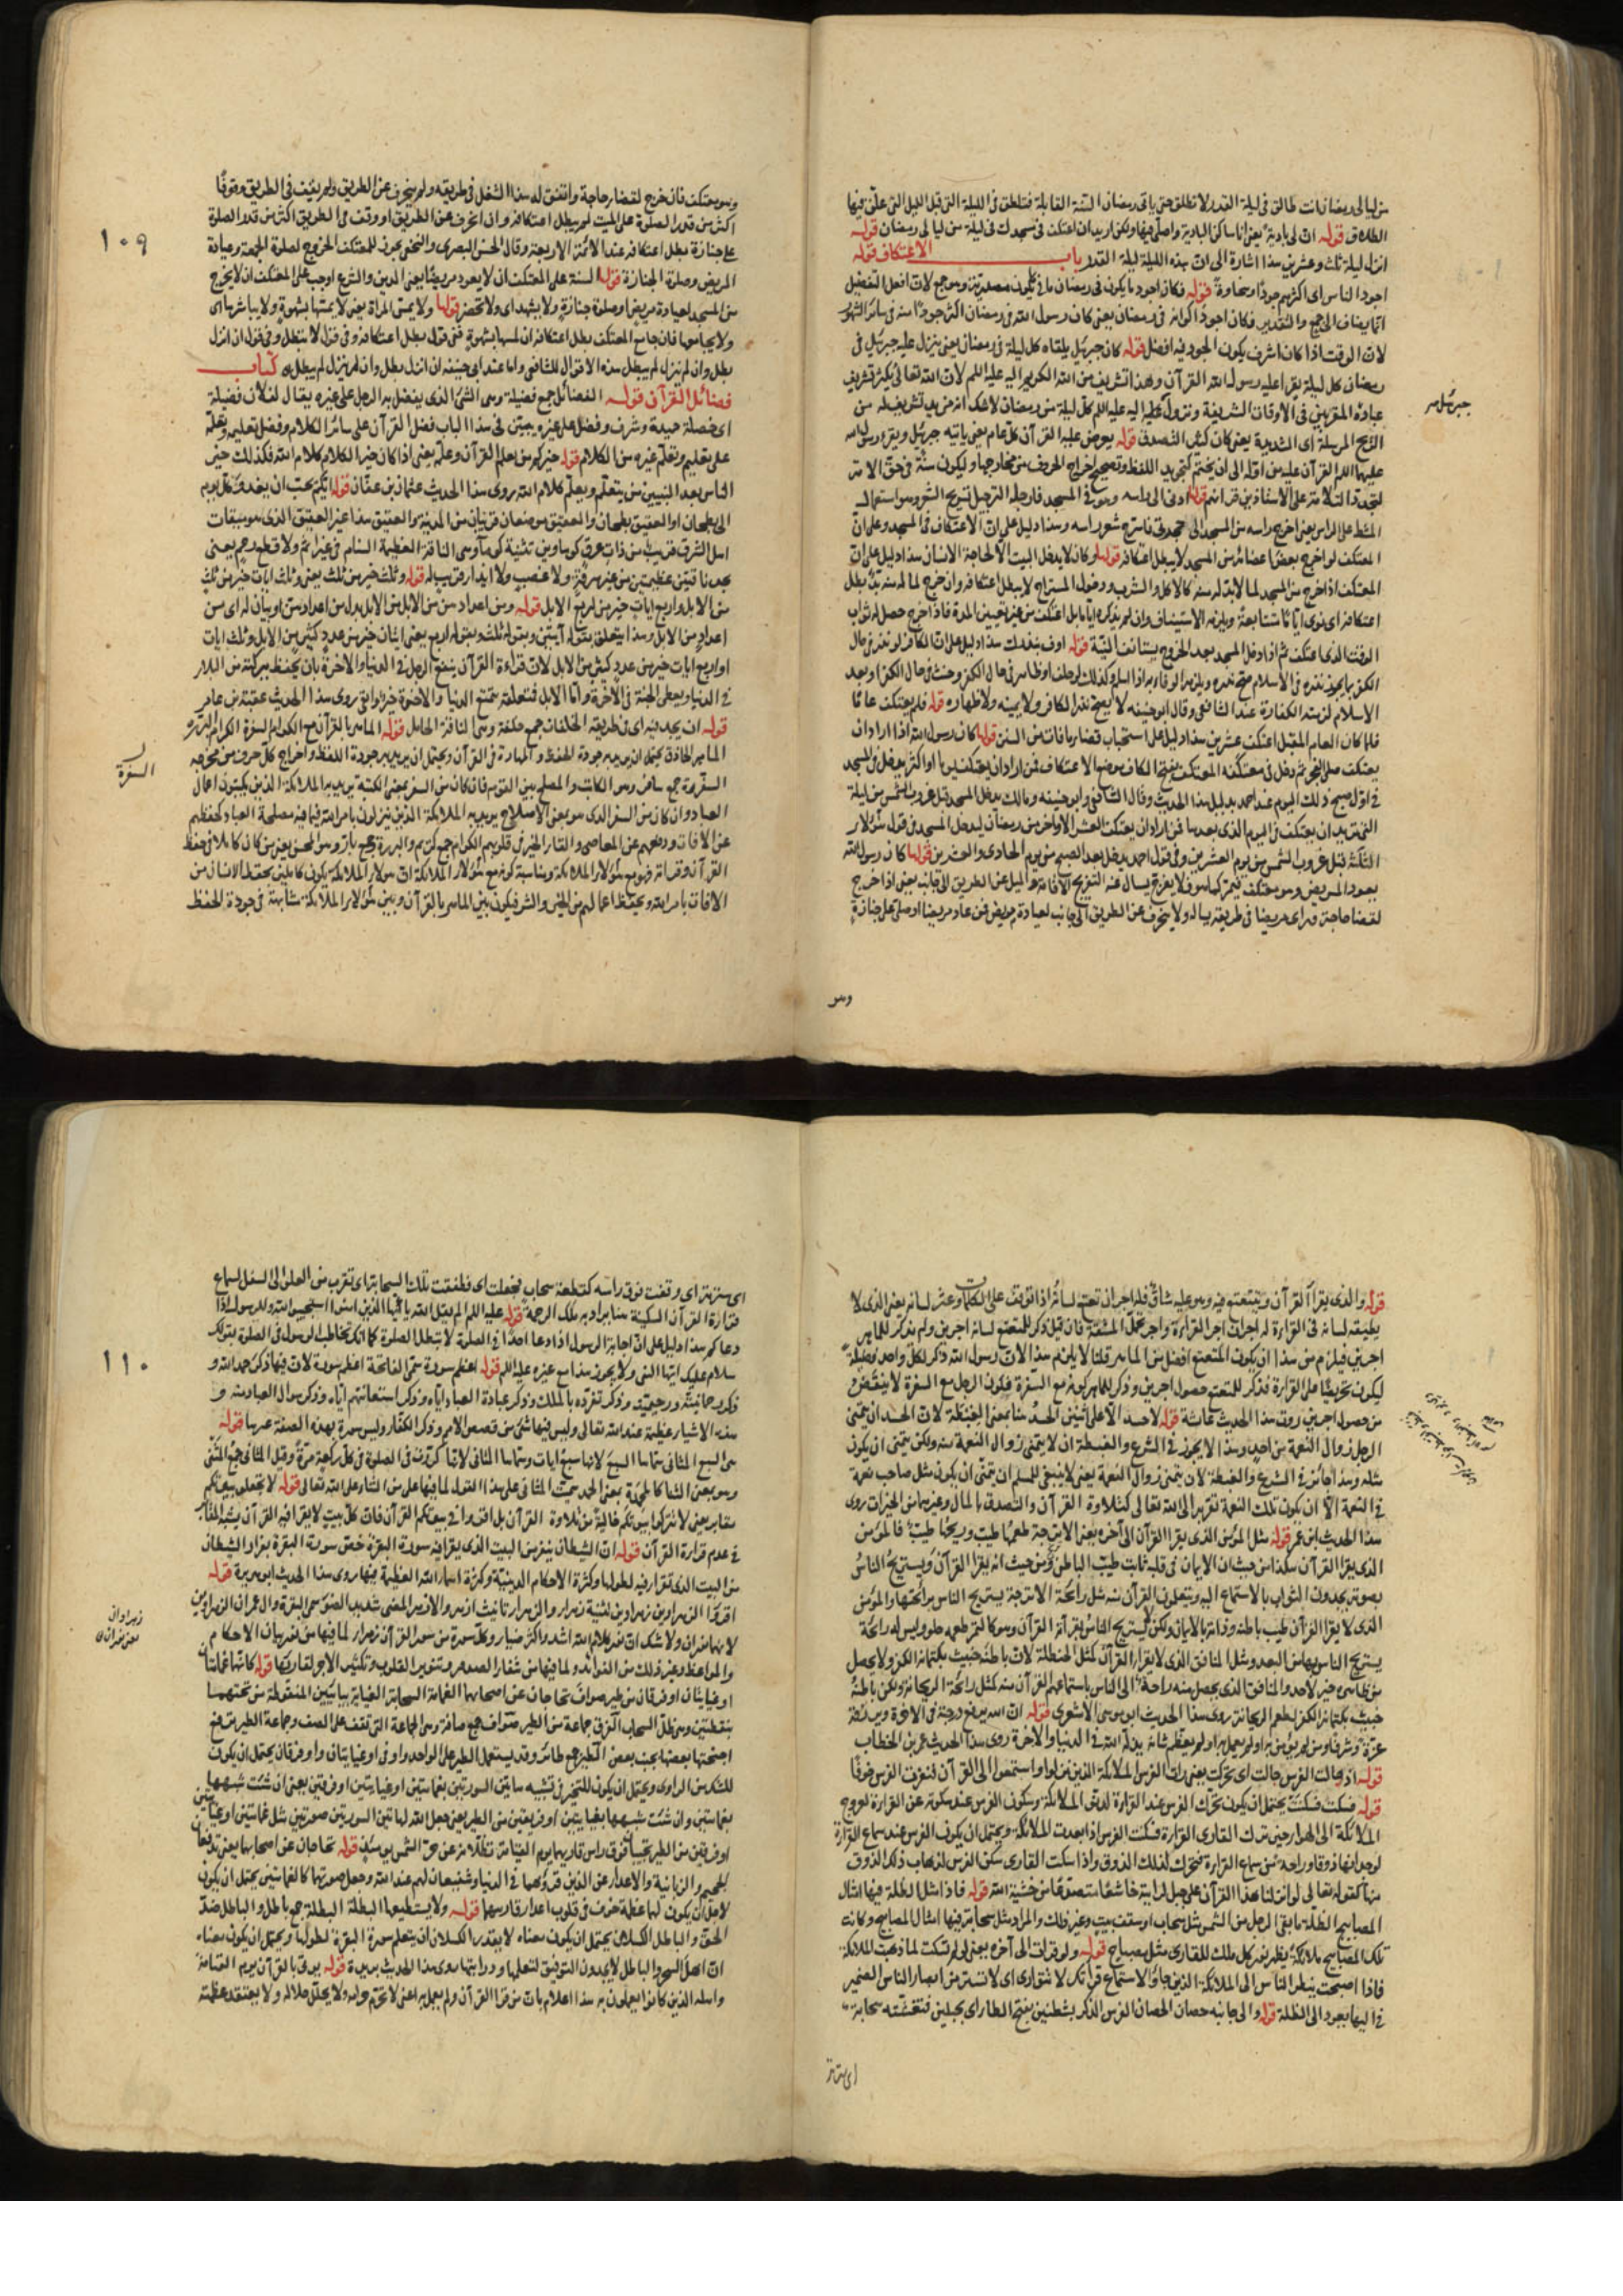 من ليالى رمضان انت طالق فى ليلة القدر لا تطلق حتى ياتى رمضان السنة القابلة فتطلق فى الليلة التى قبل الليل التى علق فيها
الطلاق قوله ان لى بادية يعنى انا ساكن البادية واصلى فيها ولكن اريد ان اعتكف فى مسجدك فى ليلة من ليالى رمضان قوله
انزل ليلة ثلث وعشرين هذا اشارة الى ان هذه الليلة ليلة القدر باب الاعتكاف قوله
اجود الناس اى اكثرهم جودا وسخاوة قوله فكان اجود ما يكون فى رمضان ما فى يكون مصدرية وهو جمع لان افعل التفضيل
انما يضاف الى جمع والتقدير فكان اجود اكوانه فى رمضان يعنى كان رسول الله فى رمضان اكثر جودا منه فى سائر الشهور
لان الوقت اذا كان اشرف يكون الجود فيه افضل قوله كان جبرئيل يلقاه كل ليلة فى رمضان يعنى ينزل عليه جبرئيل فى
رمضان كل ليلة يقرا عليه رسول الله القرآن وهذا تشريف من الله الكريم اليه عليه السلم لان الله تعالى يكثر تشريف
عباده المقربين فى الاوقات الشريفة ونزول اليه عليه السلم كل ليلة من رمضان لا شك انه من مزيد تشريف له من
جبرئيل
الريح المرسلة اى الشديدة يعنى كان كثير التصدق قوله يعرض عليه القرآن كل عام يعنى ياتيه جبرئيل ويقرء رسول الله
عليهما السلم القرآن عليه من اوله الى ان يختم لتجويد اللفظ وتصحيح اخراج الحروف من مخارجها وليكون سنة فى حق الامة
ليجددوا التلامذة على الاستاذين قراءتهم قولها ادنى الى راسه وهو فى المسجد فارجله الترجيل تسريح الشعر وهو استعمال
المشط على الراس يعنى اخرج راسه من المسجد الى حجرتى فاسرح شعر راسه وهذا دليل على ان الاعتكاف فى المسجد وعلى ان
المعتكف لو اخرج بعض اعضائه من المسجد لا يبطل اعتكافه قولها وكان لا يدخل البيت الا لحاجة الانسان هذا دليل على ان
المعتكف اذا خرج من المسجد لما لا بد له منه كالاكل والشرب ودخول المستراح لا يبطل اعتكافه وان خرج لما له منه بد بطل
اعتكافه اى نوى اياما متتابعة ويلزمه الاستيناف وان لم يذكر اياما بل اعتكف من غير تعيين المدة فاذا خرج حصل له ثواب
الوقت الذى اعتكف ثم اذا دخل المسجد بعد الخروج يستانف النية قوله اوف بنذرك هذا دليل على ان الكافر لو نذر فى حال
الكفر بما يجوز نذره فى الاسلام صح نذره ويلزمه الوفاء به اذا اسلم وكذلك لو حلف او ظاهر فى حال الكفر وحنث فى حال الكفر او بعد
الاسلام لزمته الكفارة عند الشافعى وقال ابو حنيفة لا يصح نذر الكافر ولا يمينه ولا ظهاره قوله فلم يعتكف عاما
فلما كان العام المقبل اعتكف عشرين هذا دليل على استحباب قضاء ما فات من السنن قولها كان رسول الله اذا اراد ان
يعتكف صلى الفجر ثم دخل فى معتكفه المعتكف بفتح الكاف موضع الاعتكاف فمن اراد ان يعتكف يوما او اكثر يدخل فى المسجد
فى اول صبح ذلك اليوم عند احمد بدليل هذا الحديث وقال الشافعى وابو حنيفة ومالك يدخل المسجد قبل غروب الشمس من ليلة
التى يريد ان يعتكف فى اليوم الذى بعدها فمن اراد ان يعتكف العشر الاواخر من رمضان ليدخل المسجد فى قول هؤلاء
الثلثة قبل غروب الشمس من يوم العشرين وفى قول احمد يدخل بعد الصبح من يوم الحادى والعشرين قولها كان رسول الله
يعود المريض وهو معتكف فيمر كما هو فلا يعرج يسال عنه التعريج الاقامة والميل عن الطريق الى جانب يعنى اذا خرج
لقضاء حاجة وراى مريضا فى طريقه يساله ولا ينحرف عن الطريق الى جانب لعيادة مريض فمن عاد مريضا او صلى على جنازة
وهو
١٠٩
وهو معتكف فان خرج لقضاء حاجة واتفق له هذا الشغل فى طريقه ولم ينحرف عن الطريق ولم يقف فى الطريق وقوفا
اكثر من قدر الصلوة على الميت لم يبطل اعتكافه وان انحرف عن الطريق او وقف فى الطريق اكثر من قدر الصلوة
على جنازة بطل اعتكافه عند الائمة الاربعة وقال الحسن البصرى والنخعى يجوز للمعتكف الخروج لصلوة الجمعة وعيادة
المريض وصلوة الجنازة قولها السنة على المعتكف ان لا يعود مريضا يعنى الدين والشرع اوجب على المعتكف ان لا يخرج
من المسجد لعيادة مريض او صلوة جنازة ولا يشهد اى ولا يحضر قولها ولا يمس المراة يعنى لا يمسها بشهوة ولا يباشرها اى
ولا يجامعها فان جامع المعتكف بطل اعتكافه ان لمسها بشهوة ففى قول يبطل اعتكافه وفى قول لا يبطل وفى قول ان انزل
بطل وان لم ينزل لم يبطل هذه الاقوال للشافعى واما عند ابى حنيفة ان انزل بطل وان لم ينزل لم يبطل كتاب
فضائل القرآن قوله الفضائل جمع فضيلة وهى الشئ الذى يفضل به الرجل على غيره يقال لفلان فضيلة
اى خصلة حميدة وشرف وفضل على غيره يبين فى هذا الباب فضل القرآن على سائر الكلام وفضل تعليمه وتعلمه
على تعليم وتعلم غيره من الكلام قوله خيركم من تعلم القرآن وعلمه يعنى اذا كان خير الكلام كلام الله فكذلك خير
الناس بعد النبيين من يتعلم ويعلم كلام الله روى هذا الحديث عثمان بن عفان قوله ايكم يحب ان يغدو كل يوم
الى بطحان او العقيق بطحان والعقيق موضعان قريبان من المدينة والعقيق هذا غير العقيق الذى هو ميقات
اهل الشرق قريب من ذات عرق كوماوين تثنية كوماء وهى الناقة العظيمة السنام فى غير اثم ولا قطع رحم يعنى
يجد ناقتين عظيمتين من غير سرقة ولا غصب ولا ايذاء قريب له قوله وثلث خير من ثلث يعنى وثلث ايات خير من ثلث
من الابل واربع ايات خير من اربع الابل قوله ومن اعدادهن من الابل من الابل بدل من اعدادهن او بيان له اى من
اعداد من الابل وهذا يتعلق بقوله آيتين وبقوله ثلث وبقوله اربع يعنى ايتان خير من عدد كثير من الابل وثلث ايات
او اربع ايات خير من عدد كثير من الابل لان قراءة القرآن ينفع الرجل فى الدنيا والاخرة بان يحفظ ببركته من البلاء
فى الدنيا ويعطى الجنة فى الاخرة واما الابل فتعلقه بمتع الدنيا والاخرة خير وابقى روى هذا الحديث عقبة بن عامر
قوله ان يجد فيه اى فى طريقه الخلفات جمع خلفة وهى الناقة الحامل قوله الماهر بالقرآن مع الكرام السفرة الكرام البررة
الماهر الحاذق يحتمل ان يريد به جودة الحفظ والمهارة فى القرآن ويحتمل ان يريد به جودة اللفظ واخراج كل حرف من مخرجه
السفرة
السفرة جمع سافر وهو الكاتب والمصلح بين القوم فان كان من السفر بمعنى الكتبة يريد به الملائكة الذين يكتبون اعمال
العباد وان كان من السفر الذى هو بمعنى الاصلاح يريد به الملائكة الذين ينزلون بامر الله فيما فيه مصلحة العباد كحفظهم
عن الافات ودفعهم عن المعاصى والقاء الخير فى قلوبهم الكرام جمع كريم والبررة جمع بار وهو المحسن يعنى من كان كاملا فى حفظ
القرآن وقراءته فهو مع هؤلاء الملائكة ومناسبة كونه مع هؤلاء الملائكة ان هؤلاء الملائكة يكون كاملين بحفظ الانسان من
الافات بامر الله وبحفظ اعمالهم من الخير والشر فيكون بين الماهر بالقرآن وبين هؤلاء الملائكة مشابهة فى جودة الحفظ
قوله والذى يقرأ القرآن ويتتعتع فيه وهو عليه شاق فله اجران تعتع لسانه اذا توقف على الكلمات وعثر لسانه يعنى الذى لا
يطيعه لسانه فى القراءة له اجران اجر القراءة واجر تحمل المشقة فان قيل ذكر للمتتعتع لسانه اجرين ولم يذكر للماهر
اجرين فيلزم من هذا ان يكون المتتعتع افضل من الماهر قلنا لا يلزم هذا لان رسول الله ذكر لكل واحد فضيلة
ليكون تحريضا على القراءة فذكر للمتتعتع حصول اجرين وذكر للماهر كونه مع السفرة فكون الرجل مع السفرة لا ينقص
من حصول اجرين روت هذا الحديث عائشة قوله لا حسد الا على اثنين الحسد هنا بمعنى الغبطة لان الحسد ان يتمنى
الرجل زوال النعمة من احد وهذا لا يجوز فى الشرع والغبطة ان لا يتمنى زوال النعمة منه ولكن يتمنى ان يكون
مثله وهذا جائز فى الشرع والغبطة لان يتمنى زوال النعمة يعنى لا ينبغى للمسلم ان يتمنى ان يكون مثل صاحب نعمة
فى النعمة الا ان يكون تلك النعمة تقربه الى الله تعالى كتلاوة القرآن والتصدق بالمال وغيرهما من الخيرات روى
هذا الحديث ابن عمر قوله مثل المؤمن الذى يقرا القرآن الى آخره يعنى الاترجة طعمها طيب وريحها طيب فالمؤمن
الذى يقرا القرآن هكذا من حيث ان الايمان فى قلبه ثابت طيب الباطن ومن حيث انه يقرا القرآن ويستريح الناس
بصوته يجدون الثواب بالاستماع اليه ويتعلمون القرآن منه مثل رائحة الاترجة يستريح الناس برائحتها والمؤمن
الذى لا يقرا القرآن طيب باطنه وذاته بالايمان ولكن لا يستريح الناس بقراءة القرآن وهو كالتمر طعمه حلو وليس له رائحة
يستريح الناس بها من البعد ومثل المنافق الذى لا يقرا القرآن كمثل الحنظلة لان باطنه خبيث بكتمانه الكفر ولا يحصل
من ظاهره خير لاحد والمنافق الذى يحصل منه راحة الى الناس باستماعهم القرآن منه كمثل رائحة الريحانة ولكن باطنه
خبيث بكتمانه الكفر لطعم الريحانة روى هذا الحديث ابو موسى الاشعرى قوله ان الله يرفع درجته فى الاخرة ويرزقه
عزة وشرفا ومن لم يؤمن به او لم يعمل به او لم يعظم شانه يذله الله فى الدنيا والاخرة روى هذا الحديث عمر بن الخطاب
قوله اذ جالت الفرس جالت اى تحركت يعنى رات الفرس الملائكة الذين نزلوا واستمعوا الى القرآن فنفرت الفرس خوفا
قوله فسكت فسكنت يحتمل ان يكون تحرك الفرس عند القراءة لدنو الملائكة وسكون الفرس عند سكوته عن القراءة لعروج
الملائكة الى الهواء حين ترك القارى القراءة فسكنت الفرس اذا بعدت الملائكة ويحتمل ان يكون الفرس عند سماع القراءة
لوجدانها ذوقا وراحة من سماع القراءة فتحرك لذلك الذوق واذا سكت القارى سكن الفرس لذهاب ذلك الذوق
منها كقوله تعالى لو انزلنا هذا القرآن على جبل لرايته خاشعا متصدعا من خشية الله قوله فاذا مثل الظلة فيها امثال
المصابيح الظلة ما يقى الرجل من الشمس مثل سحاب او سقف بيت وغير ذلك والمراد مثل سحابة فيها امثال المصابيح وكانت
تلك المصابيح ملائكة يظهر نور كل ملك للقارى مثل مصباح قوله ولو قرات الى آخره يعنى لو لم تسكت لما ذهبت الملائكة
فاذا اصبحت ينظر الناس الى الملائكة الذين جاؤا لاستماع قراءتك لا تتوارى اى لا تستتر من ابصار الناس الضمير
فى اليها يعود الى الظلة قوله والى جانبه حصان الحصان الفرس الذكر بشطنين بفتح الطاء اى بحبلين فتغشته سحابة
اى سترته
١١٠
اى سترته اى وقفت فوق راسه كقطعة سحاب فجعلت اى فطفقت تلك السحابة اى تقرب من العلو الى السفل لسماع
قراءة القرآن السكينة هنا يراد به ملك الرحمة قوله عليه السلم الم يقل الله يا ايها الذين امنوا استجيبوا لله وللرسول اذا
دعاكم هذا دليل على ان اجابة الرسول اذا دعا احدا فى الصلوة لا تبطل الصلوة كما انك تخاطب الرسول فى الصلوة بقولك
سلام عليك ايها النبى ولا يجوز هذا مع غيره عليه السلم قوله اعظم سورة سمى الفاتحة اعظم سورة لان فيها ذكر حمد الله و
ذكر رحمانيته ورحيميته وذكر تفرده بالملك وذكر عبادة العباد اياه وذكر استعانتهم اياه وذكر سؤال العباد منه و
هذه الاشياء عظيمة عند الله تعالى وليس فيها شئ من قصص الامم وذكر الكفار وليس سورة بهذه الصفة غيرها قوله
هى السبع المثانى سماها السبع لانها سبع ايات وسماها المثانى لانها كررت فى الصلوة فى كل ركعة مرة وقيل المثانى جمع المثنى
وهو بمعنى الثناء كالمحمدة بمعنى الحمد سميت المثانى على هذا القول لما فيها من الثناء على الله تعالى قوله لا تجعلوا بيوتكم
مقابر يعنى لا تتركوا بيوتكم خالية من تلاوة القرآن بل اقرءوا فى بيوتكم القرآن فان كل بيت لا يقرا فيه القرآن يشبه المقابر
فى عدم قراءة القرآن قوله ان الشيطان ينفر من البيت الذى يقرا فيه سورة البقرة خص سورة البقرة بفرار الشيطان
من البيت الذى تقرا فيه لطولها وكثرة الاحكام الدينية وكثرة اسماء الله العظيمة فيها روى هذا الحديث ابو هريرة قوله
اقرءوا الزهراوين زهراوين تثنية زهراء والزهراء تانيث ازهر والازهر المضئ شديد الضوء سمى البقرة وال عمران الزهراوين
لانهما نوران ولا شك ان نور كلام الله اشد واكثر ضياء وكل سورة من سور القرآن زهراء لما فيها من نور بيان الاحكام
والمواعظ وغير ذلك من الفوائد ولما فيها من شفاء الصدور وتنوير القلوب وتكثير الاجر لقاريها قوله كانهما غمامتان
او غيايتان او فرقان من طير صواف تحاجان عن اصحابهما الغمامة السحابة الغياية بياءين المنقوطة من تحتهما
بنقطتين وهو ظل السحاب الفرق جماعة من الطير صواف جمع صافة وهى الجماعة التى تقف على الصف وجماعة الطير يرفع
اجنحتها بعضها بجنب بعض الطير جمع طائر وقد يستعمل الطير على الواحد واو فى او غيايتان واو فرقان يحتمل ان يكون
للشك من الراوى ويحتمل ان يكون للتخيير فى تشبيه هاتين السورتين بغمامتين او غيايتين او فرقتين يعنى ان شئت شبهها
بغمامتين وان شئت شبهها بغيايتين او فريقين من الطير يعنى جعل الله لهاتين السورتين صورتين مثل غمامتين او غيايتين
او فرقين من الطير تجيئان فوق راس قاريهما يوم القيامة تظلانه من حر الشمس يومئذ قوله تحاجان عن اصحابهما يعنى تدفعان
الجحيم والزبانية والاعداء عن الذين قرءوهما فى الدنيا وشفيعان لهم عند الله وجعل صورتهما كالغمامتين يحتمل ان يكون
لاجل ان يكون لهما عظمة خوف فى قلوب اعداء قارئهما قوله ولا يستطيعها البطلة البطلة جمع باطل والباطل ضد
الحق والباطل الكسلان يحتمل ان يكون معناه لا يقدر الكسلان ان يتعلم سورة البقرة لطولها ويحتمل ان يكون معناه
ان اهل السحر والباطل لا يجدون التوفيق لتعلمها ودرايتها روى هذا الحديث بريدة قوله يؤتى بالقرآن يوم القيامة
واهله الذين كانوا يعملون به هذا اعلام بان من قرا القرآن ولم يعمل به اعنى لا يحرم حرامه ولا يحلل حلاله ولا يعتقد عظمته